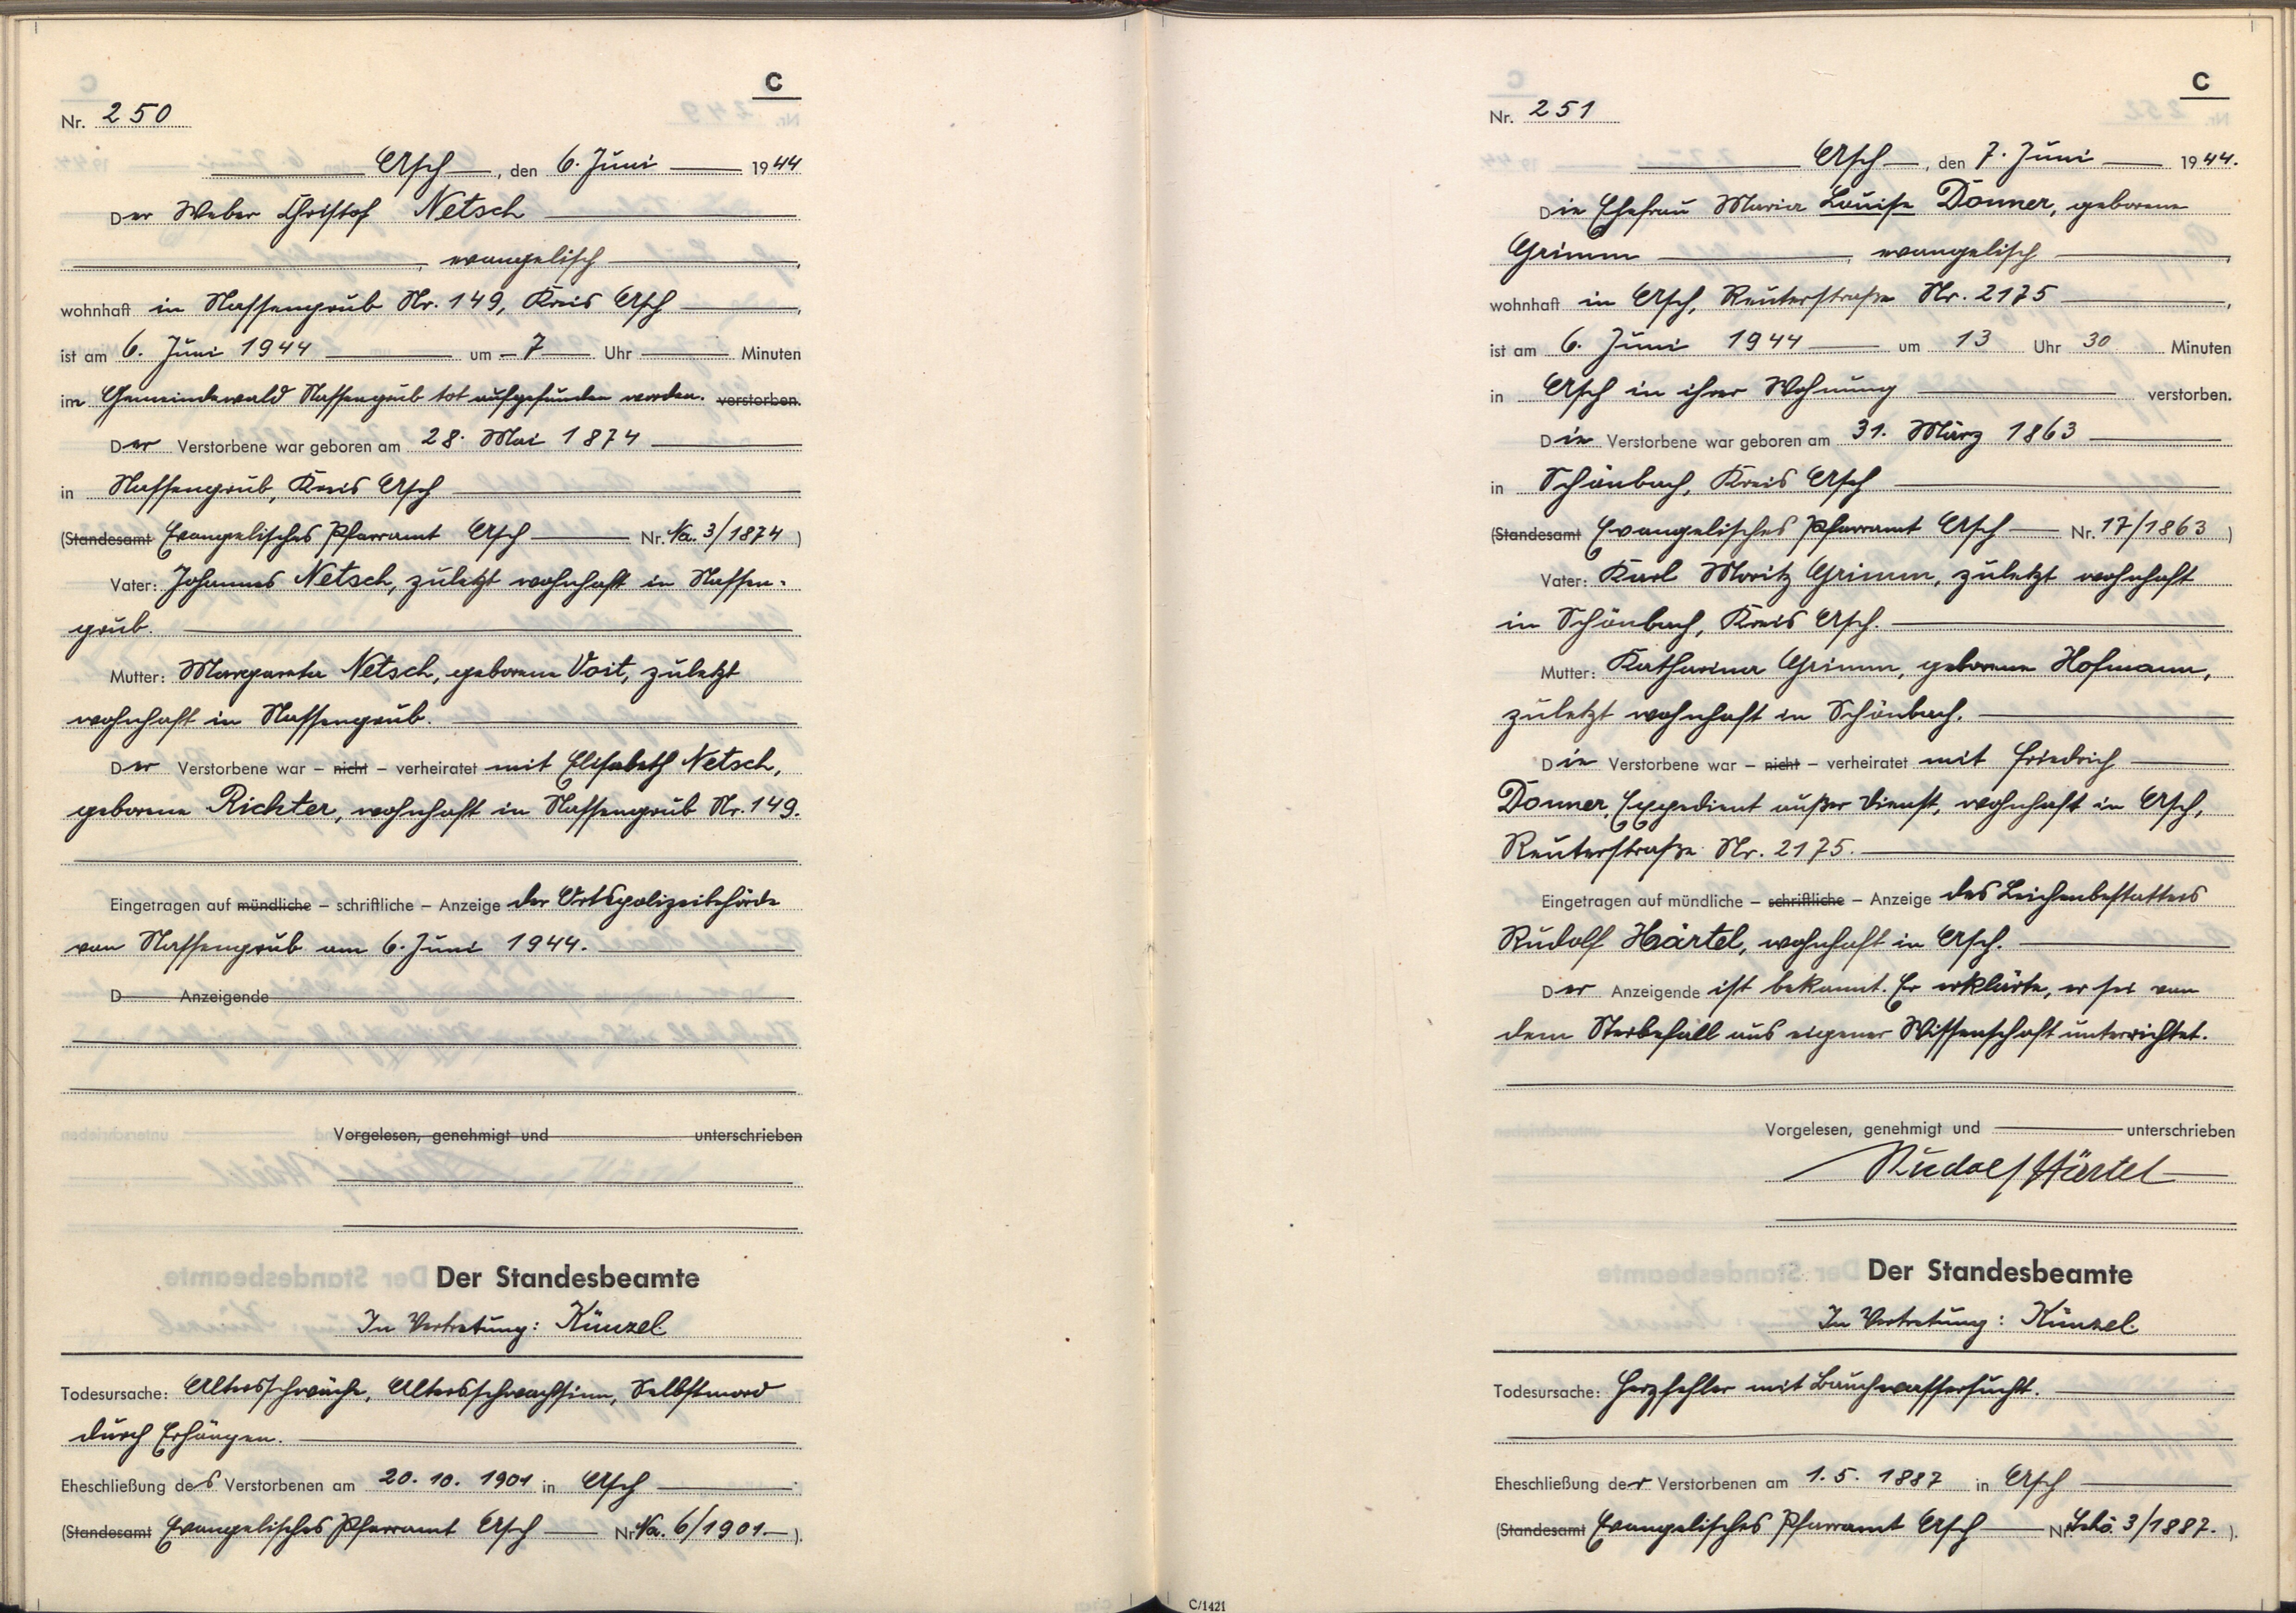 C
Nr. 250
Asch, den 6. Juni 1944
Der Weber Christof Netsch
, evangelisch,
wohnhaft in Nassengrub Nr. 149, Kreis Asch,
ist am 6. Juni 1944 um 7 Uhr Minuten
im Gemeindewald Nassengrub tot aufgefunden worden. verstorben.
Der Verstorbene war geboren am 28. Mai 1874
in Nassengrub, Kreis Asch
(Standesamt Evangelisches Pfarramt Asch Nr. Na. 3/1874)
Vater: Johannes Netsch, zuletzt wohnhaft in Nassen-
grub.
Mutter: Margareta Netsch, geborene Voit, zuletzt
wohnhaft in Nassengrub.
Der Verstorbene war – nicht – verheiratet mit Elisabeth Netsch,
geborene Richter, wohnhaft in Nassengrub Nr. 149.
Eingetragen auf mündliche – schriftliche – Anzeige der Ortspolizeibehörde
von Nassengrub am 6. Juni 1944.
D Anzeigende
Vorgelesen, genehmigt und unterschrieben
Der Standesbeamte
In Vertretung: Künzel
Todesursache: Altersschwäche, Altersschwachsinn, Selbstmord
durch Erhängen.
Eheschließung des Verstorbenen am 20. 10. 1901 in Asch.
(Standesamt Evangelisches Pfarramt Asch Nr. Na. 6/1901.).
C
Nr. 251
Asch, den 7. Juni 1944.
Die Ehefrau Maria Louise Donner, geborene
Grimm, evangelisch,
wohnhaft in Asch, Reuterstraße Nr. 2175,
ist am 6. Juni 1944 um 13 Uhr 30 Minuten
in Asch in ihrer Wohnung verstorben.
Die Verstorbene war geboren am 31. März 1863
in Schönbach, Kreis Asch
(Standesamt Evangelisches Pfarramt Asch Nr. 17/1863)
Vater: Karl Moritz Grimm, zuletzt wohnhaft
in Schönbach, Kreis Asch.
Mutter: Katharina Grimm, geborene Hofmann,
zuletzt wohnhaft in Schönbach.
Die Verstorbene war – nicht – verheiratet mit Friedrich
Donner, Expedient außer Dienst, wohnhaft in Asch,
Reuterstraße Nr. 2175.
Eingetragen auf mündliche – schriftliche – Anzeige des Leichenbestatters
Rudolf Härtel, wohnhaft in Asch.
Der Anzeigende ist bekannt. Er erklärte, er sei von
dem Sterbefall aus eigener Wissenschaft unterrichtet.
Vorgelesen, genehmigt und unterschrieben
Rudolf Härtel
Der Standesbeamte
In Vertretung: Künzel.
Todesursache: Herzfehler mit Bauchwassersucht.
Eheschließung der Verstorbenen am 1. 5. 1887 in Asch
(Standesamt Evangelisches Pfarramt Asch Nr. 3/1887.).
C/1421